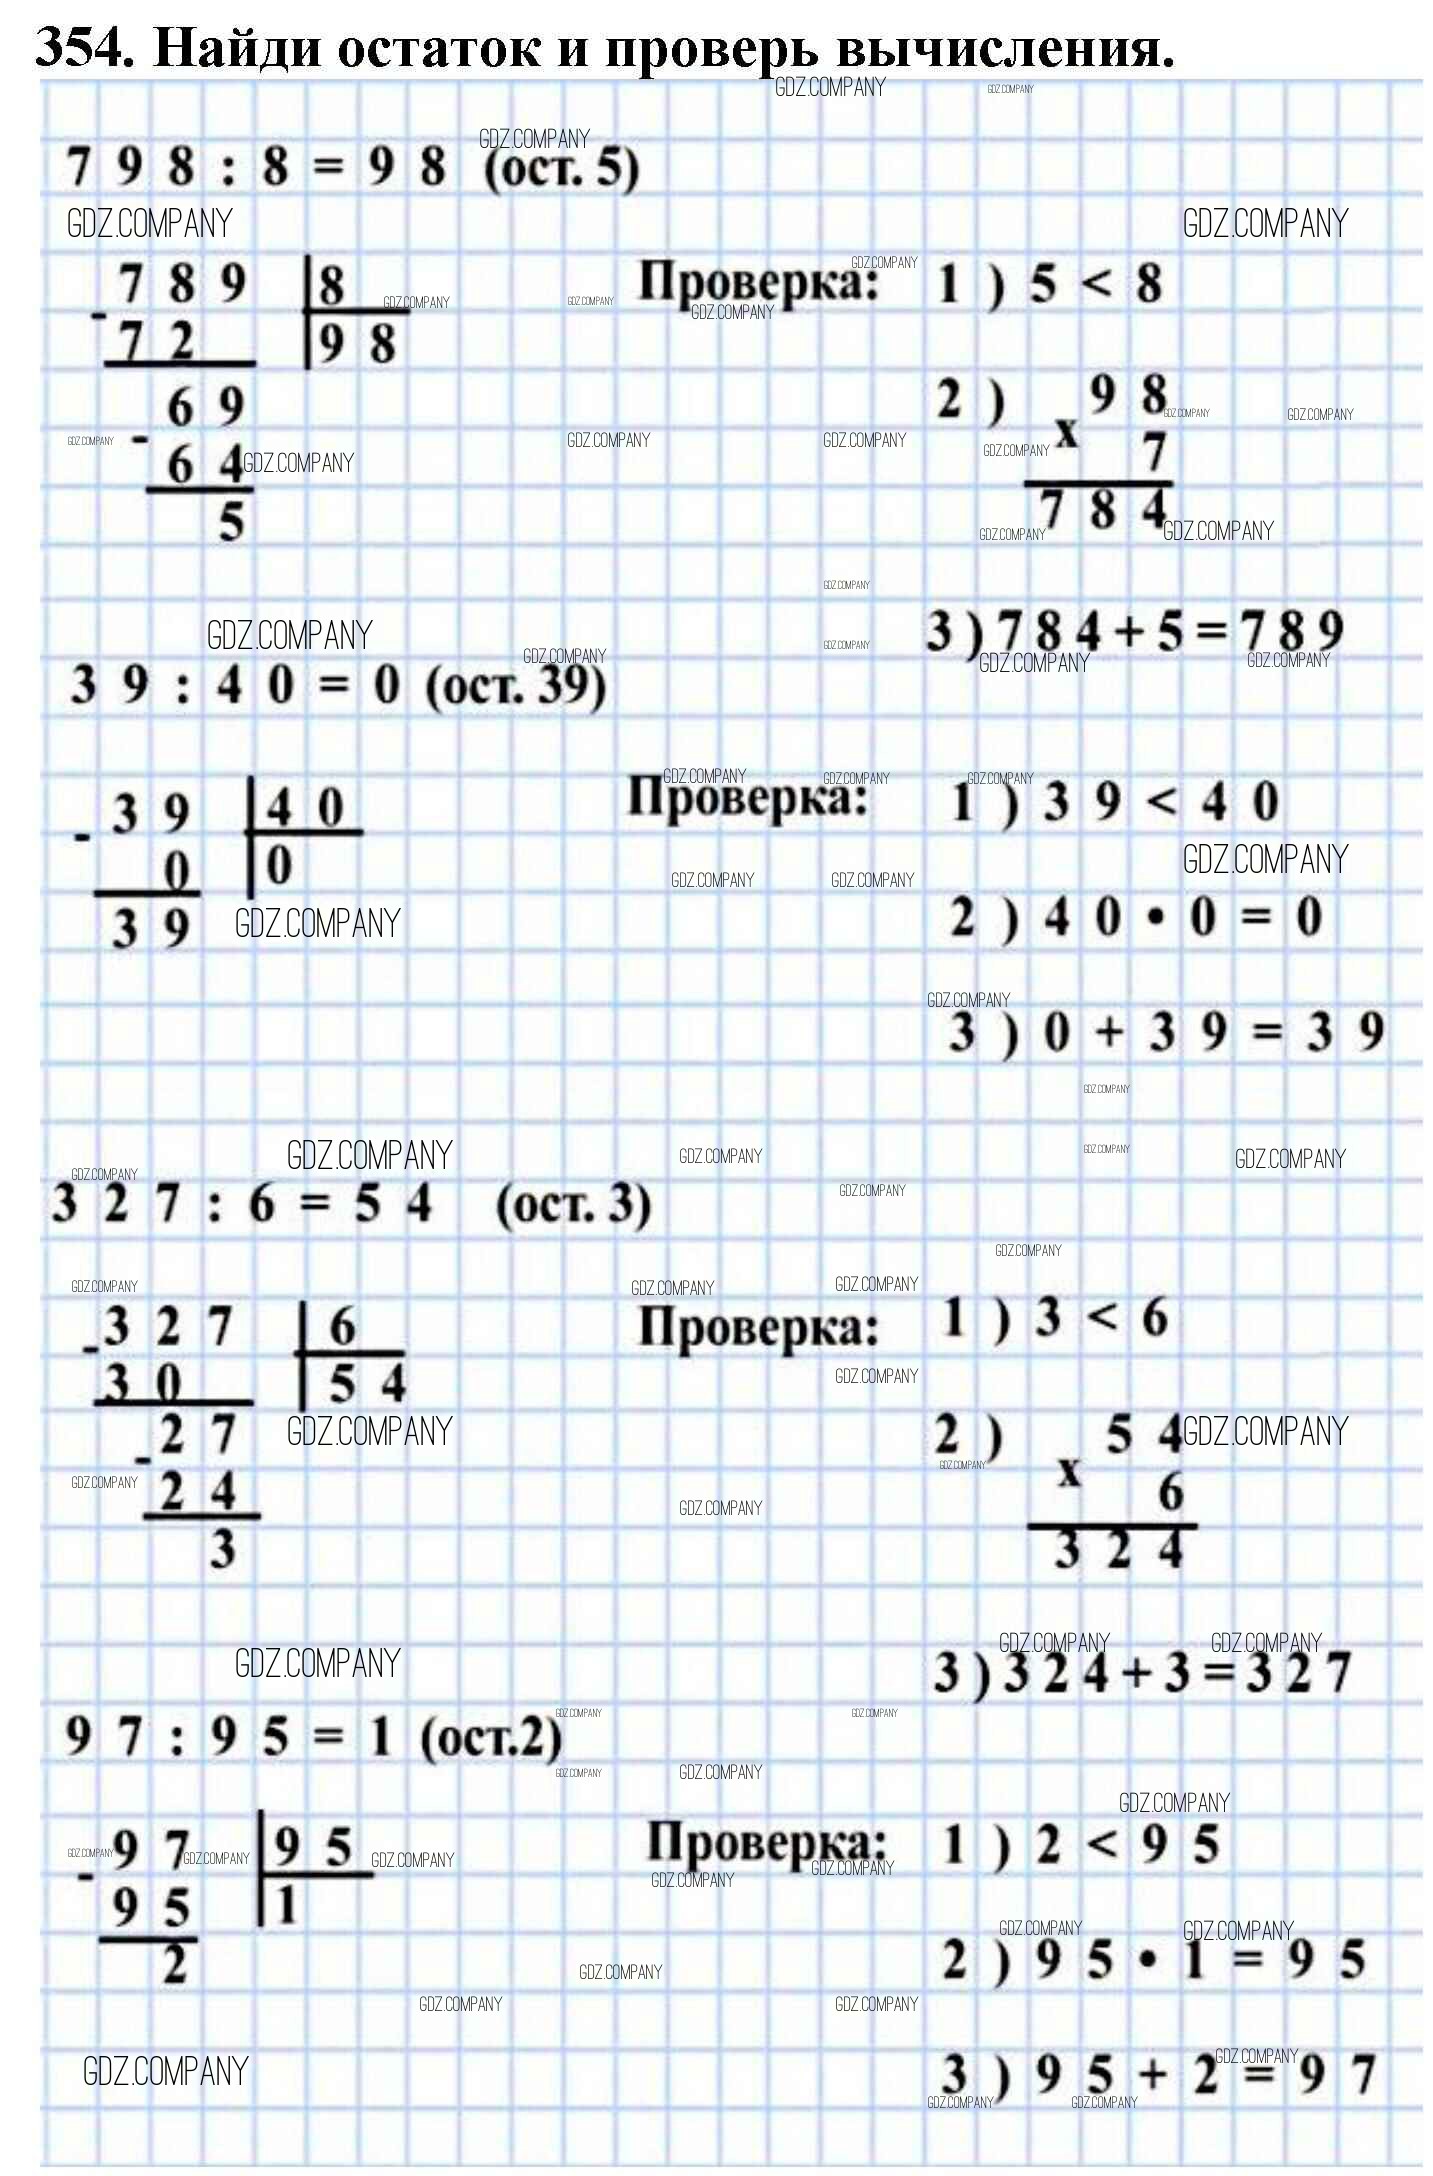 354. Найди остаток и проверь вычисления.
GDZ.COMPANY
798 : 8 = 98 (ост. 5)
789 8
- 72 98
69
- 64
5
Проверка: 1) 5 < 8
2) 98
x 7
784
3) 784 + 5 = 789
39 : 40 = 0 (ост. 39)
- 39 40
0 0
39
Проверка: 1) 39 < 40
2) 40 • 0 = 0
3) 0 + 39 = 39
327 : 6 = 54 (ост. 3)
- 327 6
30 54
- 27
24
3
Проверка: 1) 3 < 6
2) 54
x 6
324
3) 324 + 3 = 327
97 : 95 = 1 (ост.2)
- 97 95
95 1
2
Проверка: 1) 2 < 95
2) 95 • 1 = 95
3) 95 + 2 = 97
GDZ.COMPANY